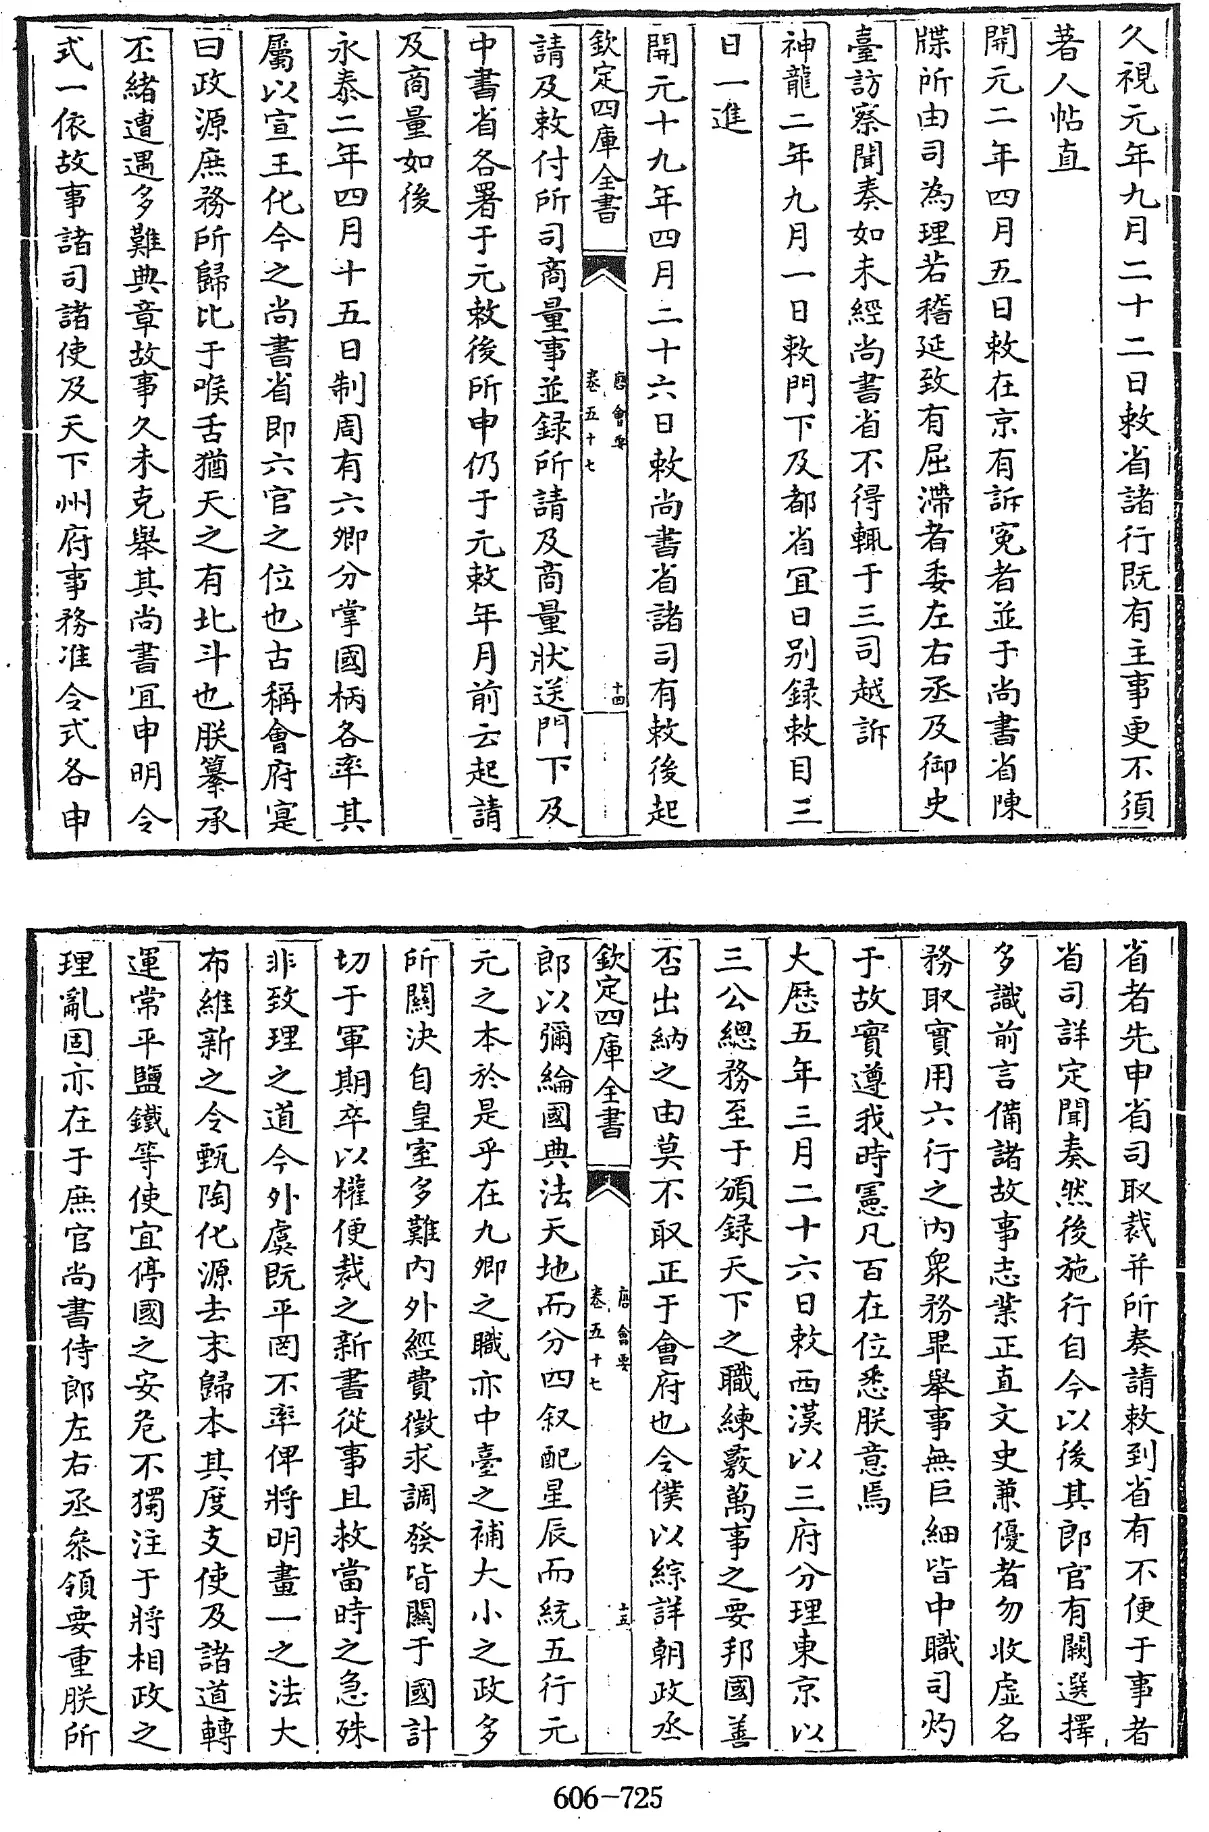 久視元年九月二十二日敕省諸行既有主事更不須
著人帖直
開元二年四月五日敕在京有訴寃者並于尚書省陳
牒所由司為理若稽延致有屈滯者委左右丞及御史
臺訪察聞奏如未經尚書省不得輒于三司越訴
神龍二年九月一日敕門下及都省宜日别録敕目三
日一進
開元十九年四月二十六日敕尚書省諸司有敕後起
欽定四庫全書
唐會要
卷五十七
十四
請及敕付所司商量事並録所請及商量狀送門下及
中書省各署于元敕後所申仍于元敕年月前云起請
及商量如後
永泰二年四月十五日制周有六卿分掌國柄各率其
屬以宣王化今之尚書省即六官之位也古稱會府寔
曰政源庶務所歸比于喉舌猶天之有北斗也朕纂承
丕緒遭遇多難典章故事久未克舉其尚書宜申明令
式一依故事諸司諸使及天下州府事務准令式各申
省者先申省司取裁并所奏請敕到省有不便于事者
省司詳定聞奏然後施行自今以後其郎官有闕選擇
多識前言備諸故事志業正直文史兼優者勿收虛名
務取實用六行之内衆務畢舉事無巨細皆中職司灼
于故實遵我時憲凡百在位悉朕意焉
大厯五年三月二十六日敕西漢以三府分理東京以
三公總務至于頒録天下之職練覈萬事之要邦國善
否出納之由莫不取正于會府也令僕以綜詳朝政丞
欽定四庫全書
唐會要
卷五十七
十五
郎以彌綸國典法天地而分四叙配星辰而統五行元
元之本於是乎在九卿之職亦中臺之補大小之政多
所關決自皇室多難内外經費徵求調發皆關于國計
切于軍期卒以權便裁之新書從事且救當時之急殊
非致理之道今外虞既平罔不率俾將明畫一之法大
布維新之令甄陶化源去末歸本其度支使及諸道轉
運常平鹽鐵等使宜停國之安危不獨注于將相政之
理亂固亦在于庶官尚書侍郎左右丞叅領要重朕所
606-725